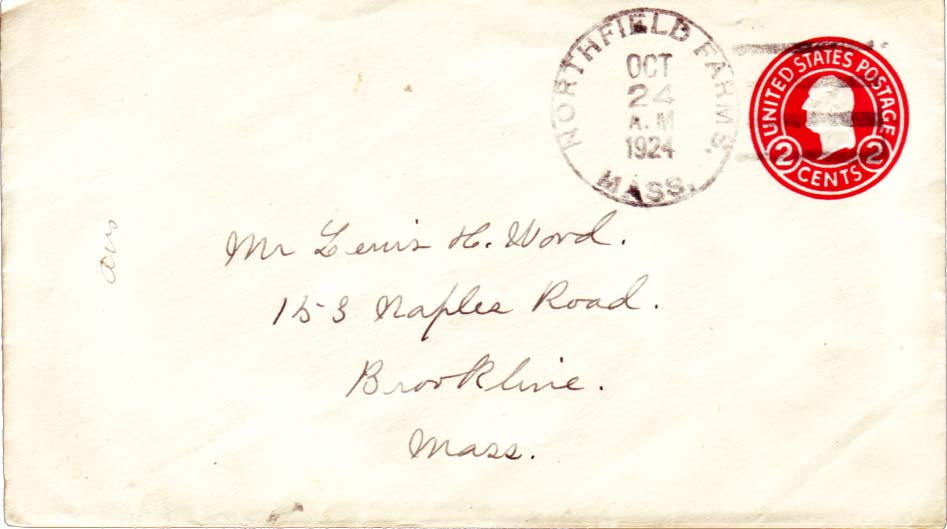 NORTHFIELD FARMS,
MASS.
OCT
24
A.M
1924
UNITED STATES POSTAGE
2 CENTS 2
Mr Lewis H. Wood.
153 Naples Road.
Brookline.
Mass.